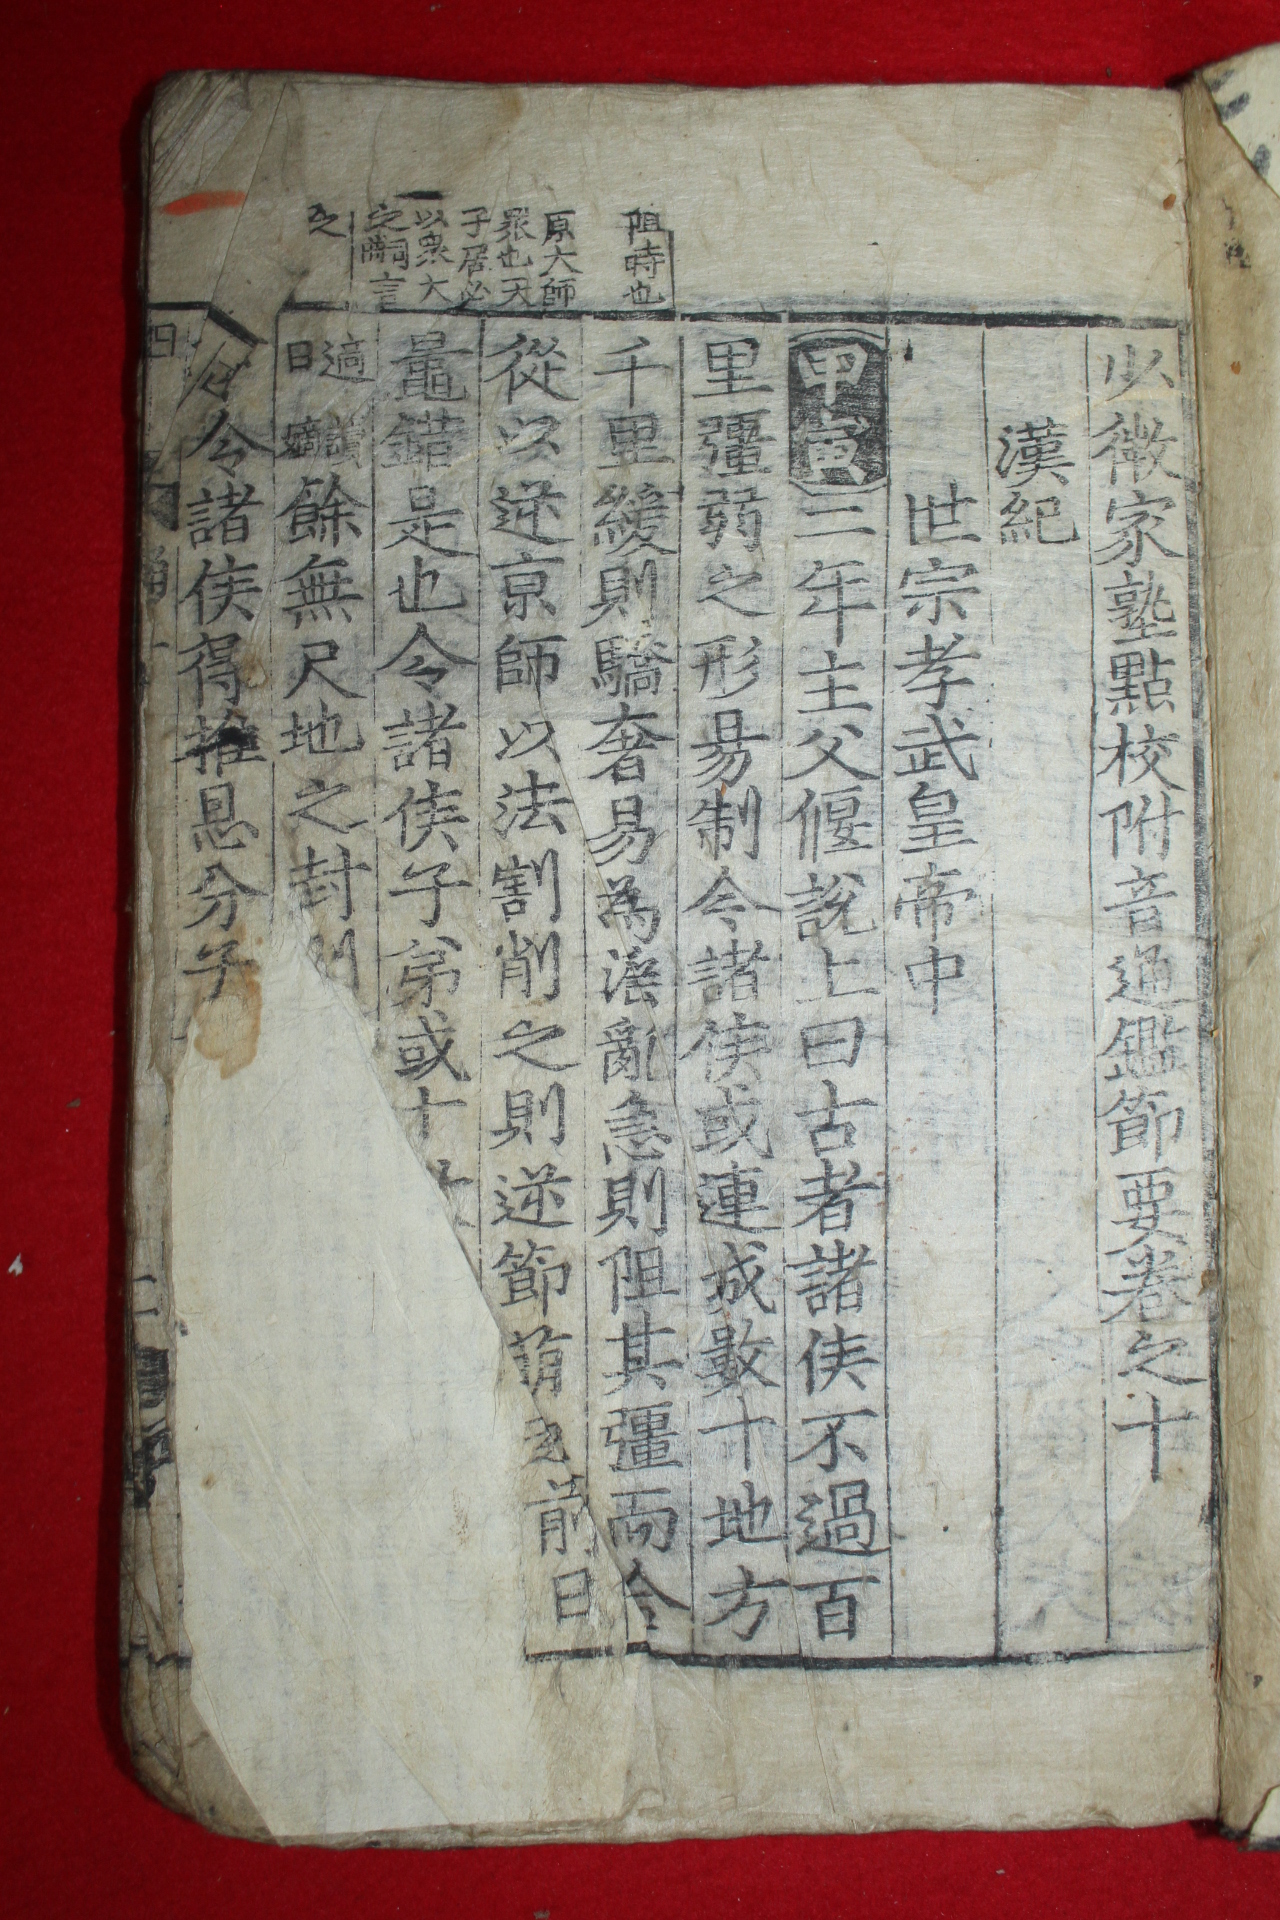 少微家塾點校附音通鑑節要卷之十
漢紀
世宗孝武皇帝中
甲寅二年主父偃說上曰古者諸侯不過百
里彊弱之形易制今諸侯或連城數十地方
千里緩則驕奢易為淫亂急則阻其彊而合
從以逆京師以法割削之則逆節萌起前日
鼂錯是也今諸侯子弟或十
適
餘無尺地之封則
令諸侯得推恩分子
阻時也
原大師
衆也天
子居必
以衆大
之詞言
之